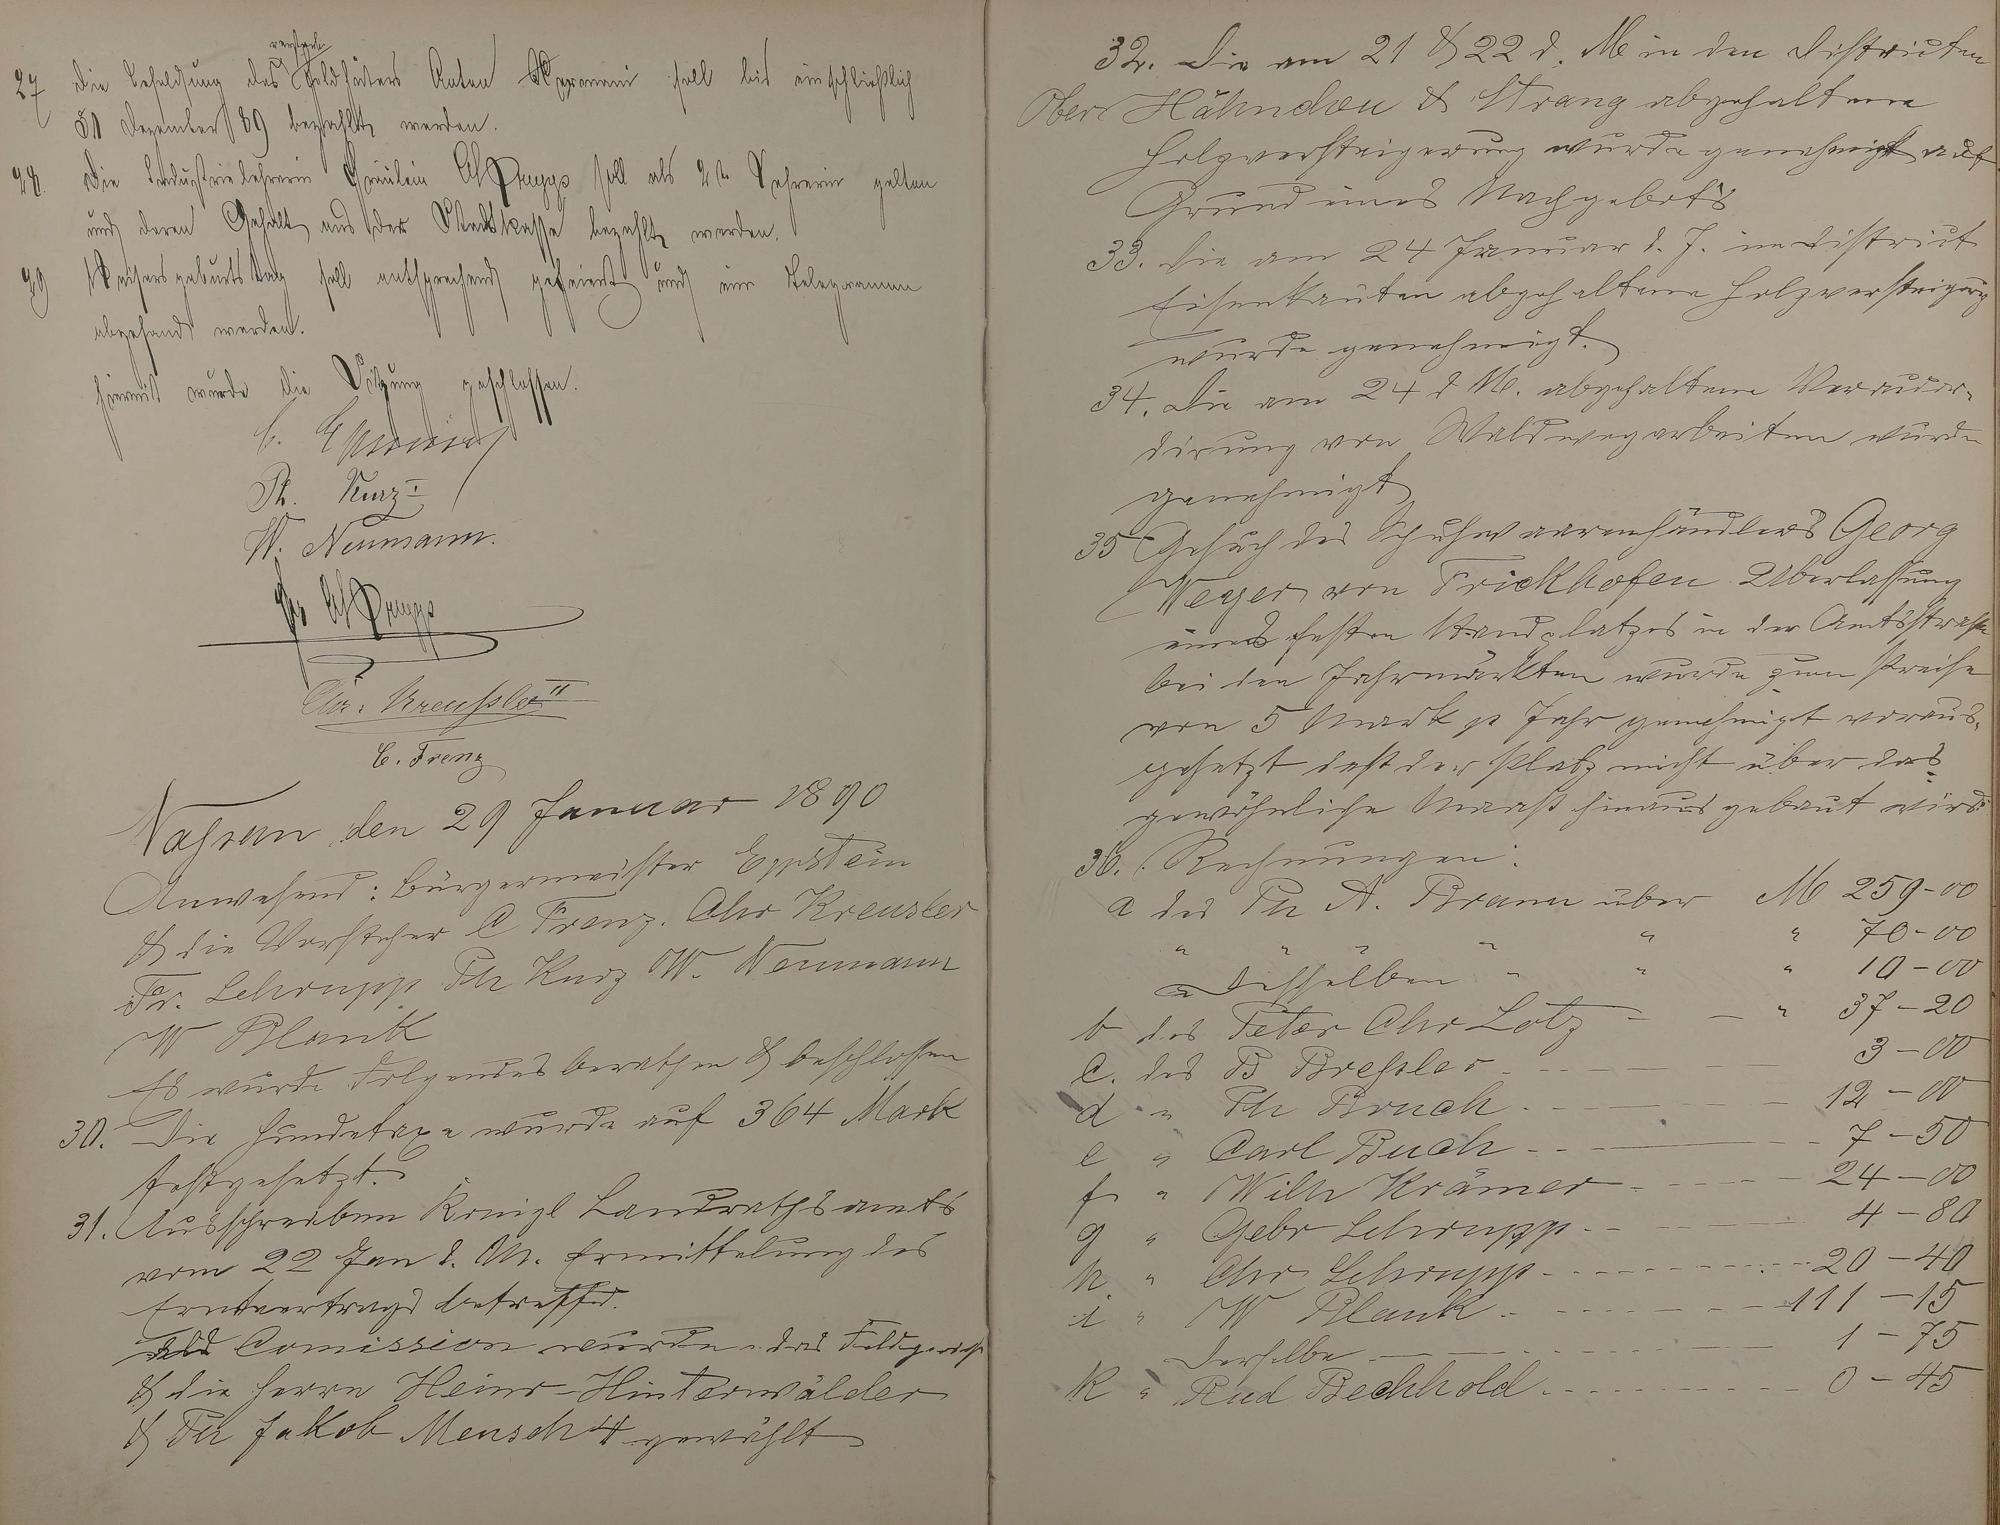 verstorb.
27 Die Besoldung des Feldhüters Anton Hermani soll bis einschließlich
31 Dezember 89 bezahlt werden.
28. Die Industrielehrerin Fräulein Schrupp soll als 2te Lehrerin gelten
und deren Gehalt aus der Stadtkasse bezahlt werden.
29 Kaisersgeburtstag soll entsprechend gefeiert und ein Telegramm
abgesandt werden.
Hiermit wurde die Sitzung geschlossen.
Ph. Kurz I
W. Neumann.
Fr Schrupp
Chr. Kreußler II
C. Frenz
den 29 Januar 1890
Anwesend: Bürgermeister Eppstein
& die Vorsteher C Frenz. Chr Kreusler
Fr. Schrupp Ph Kurz W. Neumann
W Blank
Es wurde Folgendes berathen & beschlossen
30. Die Hundetaxe wurde auf 364 Mark
festgesetzt.
31. Ausschreiben Königl Landrathsamts
vom 22 Jan d. M. Ermittelung des
Ernteertrags betreffd.
Als Comission wurde das Feldgericht
& die Herrn Heinr Hinterwälder
& Ph Jakob Mensch 4 gewählt
32. Die am 21 & 22 d. M in den Districten
Ober Hähnchen & Strang abgehaltene
Holzversteigerung wurde genehmigt auf
Grund eines Nachgebots
33. Die am 24 Januar d. J. im District
Eisenkauten abgehaltene Holzversteigerung
wurde genehmigt.
34. Die am 24 d M. abgehaltene Veraccor-
dirung von Waldwegarbeiten wurde
genehmigt
35 Gesuch des Schuhwaarenhändlers Georg
Weyer von Frickhofen Überlassung
eines festen Standplatzes in der Amtsstraße
bei den Jahrmärkten wurde zum Preise
von 5 Mark p Jahr genehmigt voraus-
gesetzt daß der Platz nicht über das
gewöhnliche Maaß hinaus gebaut wird
36. Rechnungen:
a des Ph A. Braun über M 259-00
" " " " " " 70-00
" Desselben " " " 10-00
b des Peter Chr Lotz - - " 37-20
c. des B Breßler 3-00
d " Ph Bruch 12-00
e " Carl Buch 7-50
f " Wilh Krämer 24-00
g " Gebr Schrupp 4-80
h " Chr Schrupp 20-40
i " W Blank 111-15
Derselbe 1-75
k " Rud Bechhold 0-45